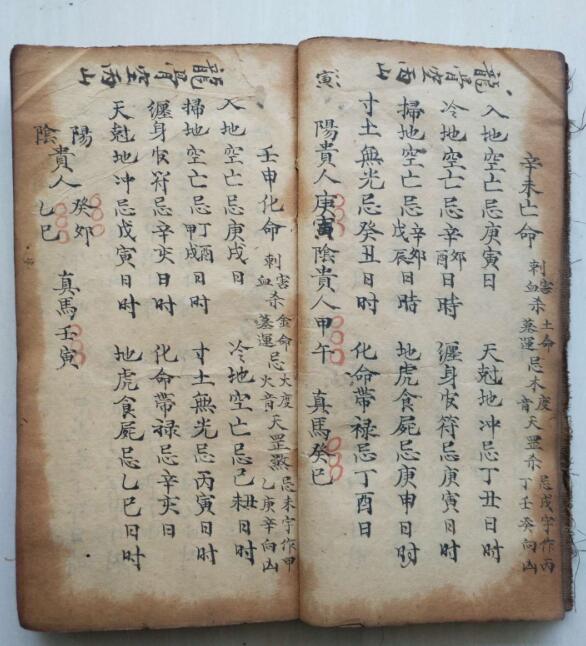 龍骨空而山
辛未亡命
刺害
血杀
土命
墓運忌木度
音天罡杀
忌戌字作丙
丁壬癸向凶
入地空亡忌庚寅日
天尅地冲忌丁丑日时
冷地空亡忌辛卯酉日時
纏身伏符忌庚寅日时
掃地空亡忌辛卯戊辰日時
地虎食屍忌庚申日时
寸土無光忌癸丑日时
化命帶禄忌丁酉日
陽貴人庚寅陰貴人甲午
真馬癸巳
寅
龍骨空而山
壬申化命
刺害
血杀
金命
墓運忌火度
火音天罡煞
忌未字作甲
乙庚辛向凶
入地空亡忌庚戌日
冷地空亡忌己丑未日时
掃地空亡忌丁酉甲戌日时
寸土無光忌丙寅日时
纏身伏符忌辛亥日时
化命帶禄忌辛亥日
天尅地冲忌戊寅日时
地虎食屍忌乙巳日时
陽貴人癸卯
陰貴人乙巳
真馬壬寅